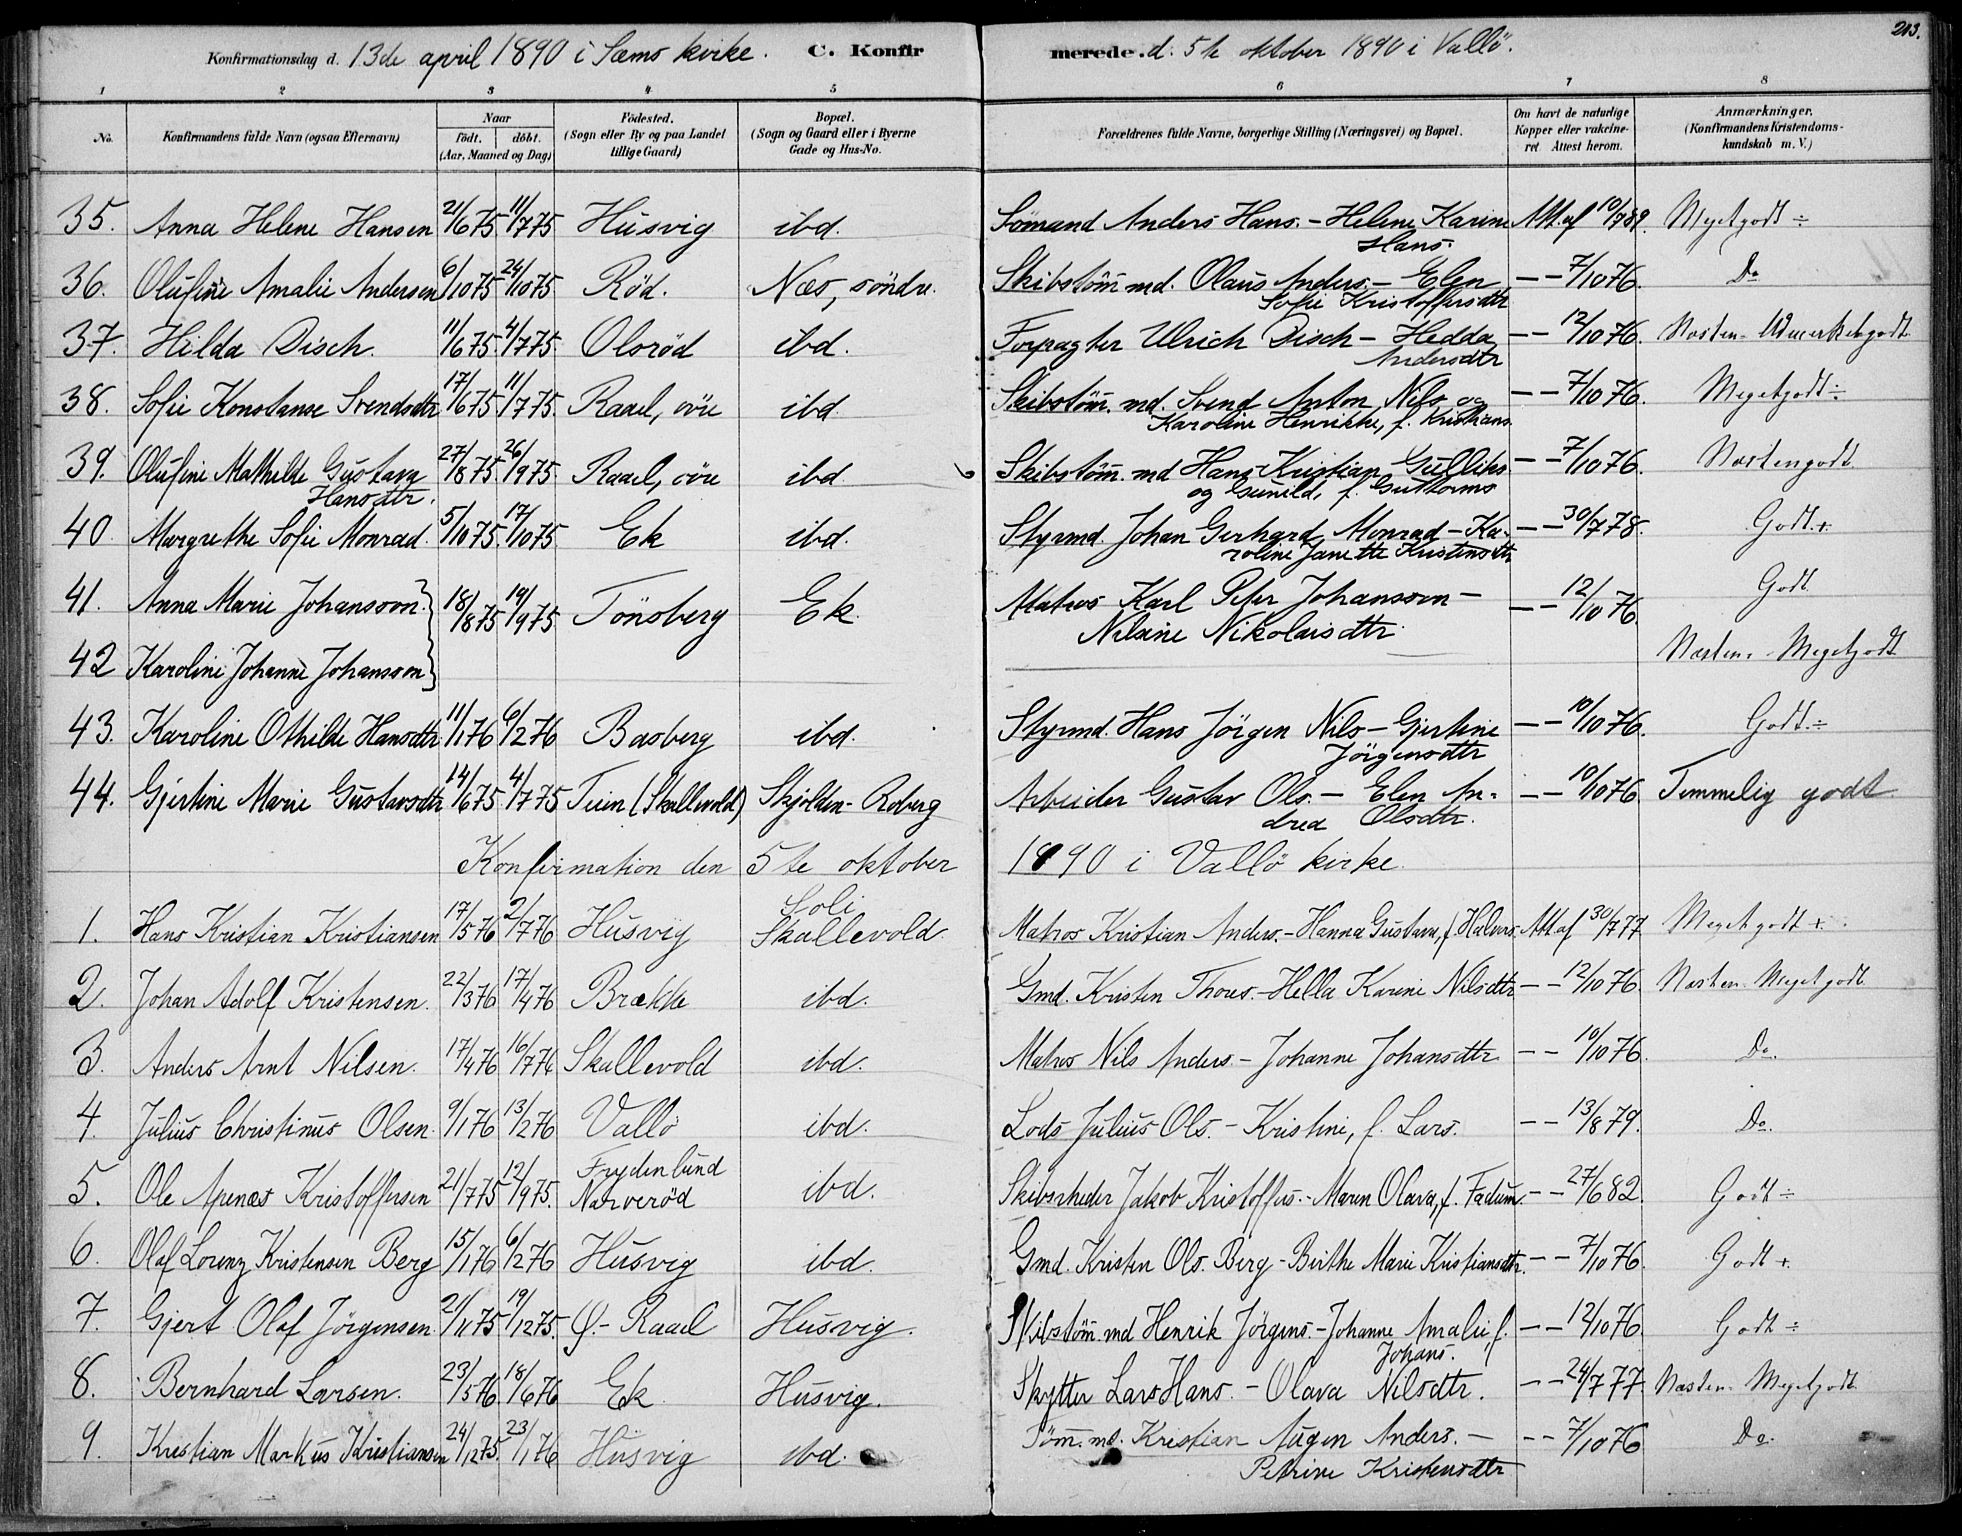 213.
Konfirmationsdag d. 13de april 1890 i Sems kirke. C. Konfirmerede. d. 5te oktober 1890 i Vallö.
1 2 3 4 5 6 7 8
No. Konfirmandens fulde Navn (ogsaa Efternavn) Naar födt. döbt. (Aar, Maaned og Dag) Födested. (Sogn eller By og paa Landet tillige Gaard) Bopæl. (Sogn og Gaard eller i Byerne Gade og Hus-No. Forældrenes fulde Navne, borgerlige Stilling (Næringsvei) og Bopæl. Om havt de naturlige Kopper eller vakcineret Attest herom. Anmærkninger. (Konfirmandens Kristendomskundskab m. V.)
35. Anna Helene Hansen 21/6 75. 11/7 75 Husvig ibd. Sömand Anders Hans. - Helene Karine Att. af 10/7 89. Megetgodt ÷
Hans.
36. Olufine Amalie Andersen 6/10 75. 24/10 75 Röd. Næs, söndre. Skibstöm̄ md. Olaus Anders. - Elen — — 7/10 76. Do
Sofie Kristoffersdtr
37. Hilda Disch. 11/6 75. 4/7 75. Olsröd ibd. Forpagter Ulrich Disch - Hedda — — 12/10 76. Næsten - Udmærketgodt
Andersdtr
38. Sofie Konstanse Svendsdtr 17/6 75. 11/7 75. Raael, övre ibd. Skibstöm̄. md. Svend Anton Nils. og — — 7/10 76. Megetgodt ÷
Karoline Henrikke, f. Kristians.
39. Olufine Mathilde Gustava 27/8 75. 26/9 75 Raael, övre ibd Skibstöm̄. md Hans Kristian Gulliks — — 7/10 76. Næstengodt
Hansdtr. og Gunild, f. Guttorms
40. Margrethe Sofie Monrad. 5/10 75. 17/10 75. Ek ibd. Styrmd. Johan Gerhard Monrad - Ka- — — 30/7 78. Godt +
roline Janette Kristensdtr
41. Anna Marie Johansson. 18/8 75 19/9 75 Tönsberg Ek. Matros Karl Peter Johansson - — — 12/10 76 Godt
Nilsine Nikolaisdtr.
42 Karoline Johanne Johansson Næsten - Megetgodt
43. Karoline Othilde Hansdtr. 11/1 76 6/2 76 Basberg ibd. Styrmd. Hans Jörgen Nils - Gjertine — — 10/10 76. Godt ÷
Jörgensdtr
44. Gjertine Marie Gustavsdtr 14/6 75. 4/7 75 Teien (Skallevold) Skjolden - Roberg Arbeider Gustav Ols. - Elen An- — — 10/10 76. Temmelig godt
drea Olsdtr.
Konfirmation den 5te oktober 1890 i Vallö kirke.
Soli
1. Hans Kristian Kristiansen 17/5 76 2/7 76 Husvig Skallevold. Matros Kristian Anders. - Hanna Gustava, f. Halvors. Att af 30/7 77 Megetgodt +.
2. Johan Adolf Kristensen. 22/3 76 17/4 76 Brække ibd. Gmd. Kristen Thors. - Hella Karine Nilsdtr — — 12/10 76. Næsten - Megetgodt
3. Anders Arnt Nilsen. 17/4 76 16/7 76 Skallevold ibd. Matros Nils Anders - Johanne Johansdtr. — — 10/10 76. Do.
4. Julius Christinus Olsen. 9/1 76 13/2 76 Vallö ibd. Lods Julius Ols. - Kristine, f. Lars. — — 13/8 79. Do.
Frydenlund
5. Ole Apenæs Kristoffersen 21/7 75 12/9 75. Narveröd ibd. Skibsrheder Jakob Kristoffers. - Maren Olava, f. Fadum — — 27/6 82. Godt ÷
6. Olaf Lorenz Kristensen Berg 15/1 76 6/2 76 Husvig ibd. Gmd. Kristen Ols. Berg - Birthe Marie Kristiansdtr. — — 7/10 76. Godt +.
7. Gjert Olaf Jörgensen. 21/11 75 19/12 75. Ø.- Raael Husvig. Skibstöm̄. md Henrik Jörgens. - Johanne Amalie, f. — — 12/10 76. Godt ÷
Johans.
8. Bernhard Larsen. 23/5 76. 18/6 76 Ek Husvig. Skytter Lars Hans. - Olava Nilsdtr. — — 24/7 77. Næsten - Megetgodt.
9. Kristian Markus Kristiansen 24/12 75. 23/1 76 Husvig ibd. Töm̄. md. Kristian Augen Anders. - — — 7/10 76 Do.
Petrine Kristensdtr